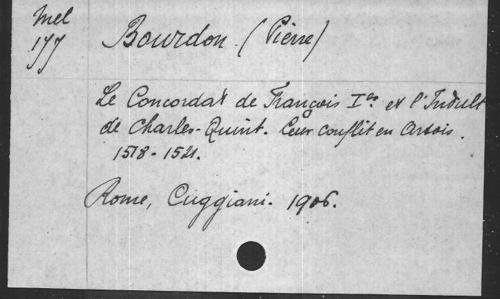 Mel
177
Bourdon (Pierre)
Le Concordat de François Ier et l'Indult
de Charles-Quint. Leur conflit en Artois.
1518-1521.
Rome, Cuggiani. 1906.